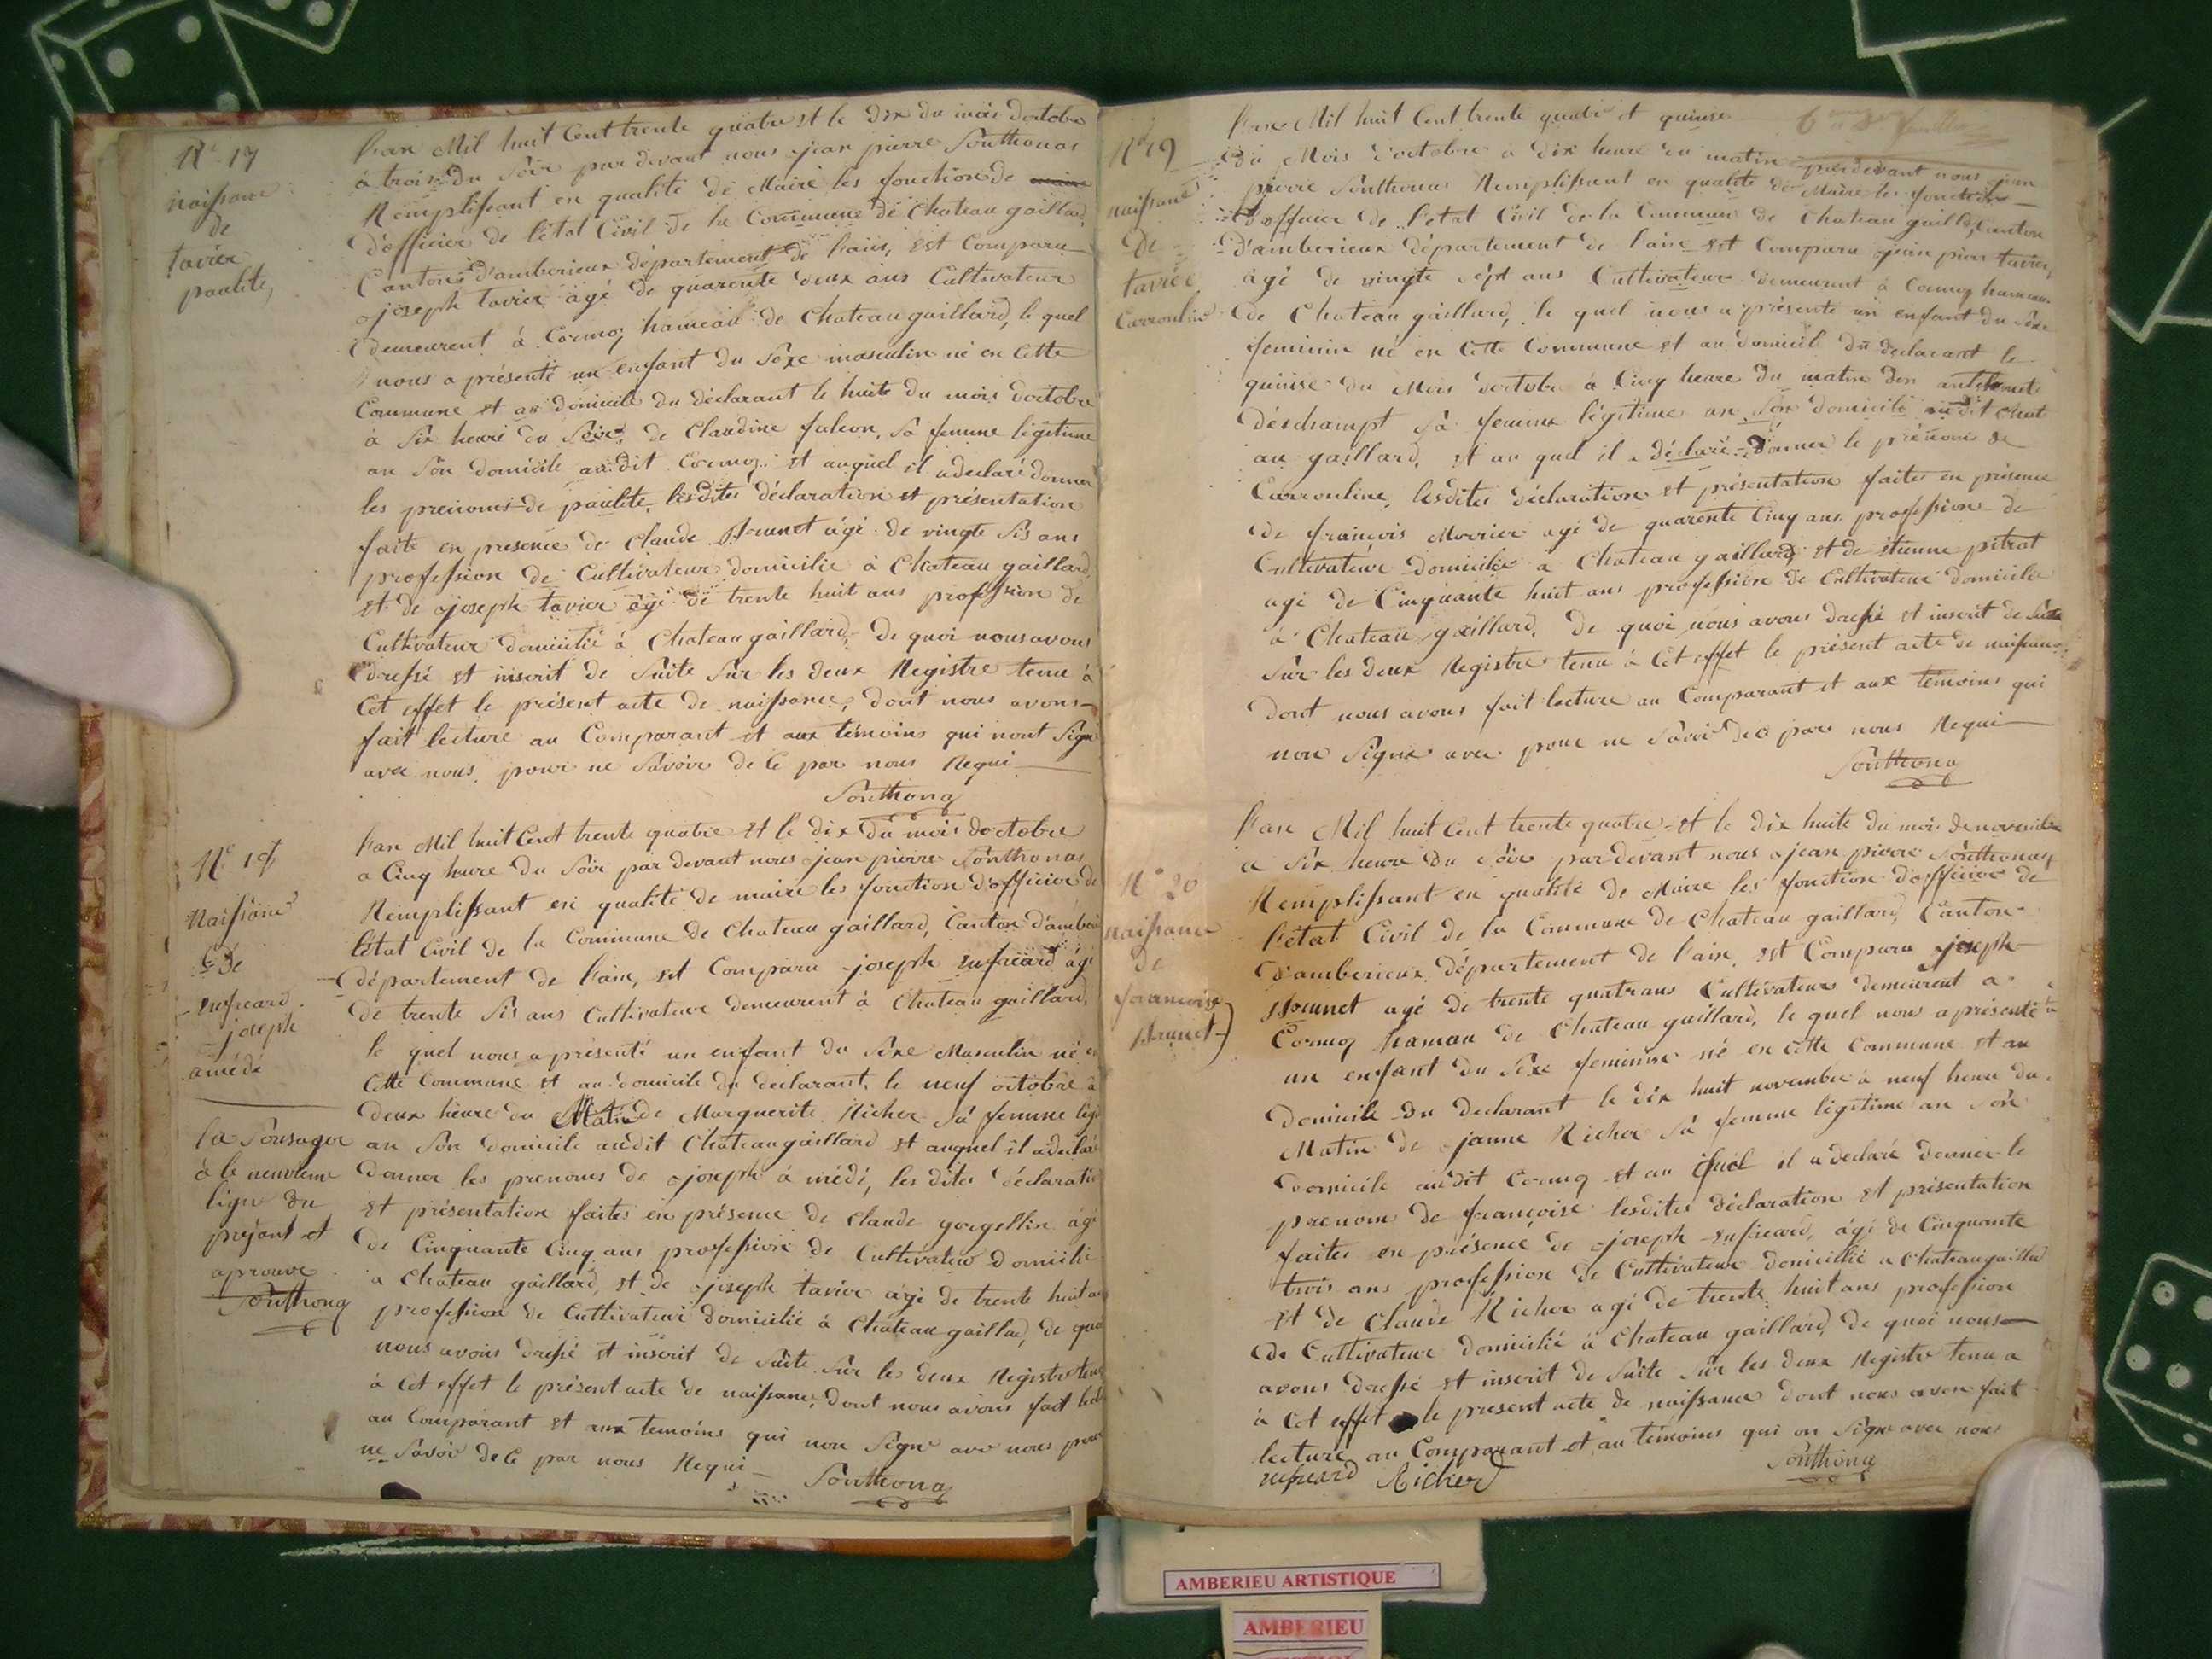 N° 17
naissance
de
tavier
paulite,
L'an Mil huit Cent trente quatre et le dix du mois doctobre
à trois du Soir par devant nous jean pierre Southonax
Remplissant en qualité de Maire les fonction de
d'officier de l'état Civil de la Commune de Chateau gaillard,
Canton d'amberieux département de l'ain, est Comparu
joseph tavier âgé de quarente deux ans Cultivateur
demeurent à Cormoz hameau de Chateau gaillard, le quel
nous a présenté un enfant du Sexe masculin né en Cette
Commune et au domicile du déclarant le huit du mois doctobre
à Six heure du Soir, de Claudine falcon, Sa femme légitime
an Son domicile audit Cormoz et auquel il a declaré donner
les prenoms de paulite, lesdites déclaration et présentation
faite en presence de Claude Brunet âgé de vingte Sis ans
profession de Cultivateur domicilie à Chateau gaillard
et de joseph tavier âgé de trente huit ans profession de
Cultivateur domicilié à Chateau gaillard, de quoi nous avons
dressé et inscrit de Suite Sur les deux Registre tenu à
Cet effet le présent acte de naissance, dont nous avons
fait lecture au Comparant et aux témoins qui nont Signe
avec nous pour ne Savoir de Ce par nous Requi
Southonax
N° 18
Naissance
de
enfreard
joseph
amédé
la Sousager
à le neuvieme
ligne du
present et
aprouve
Southonax
L'an Mil huit Cent trente quatre et le dix du mois doctobre
a Cinq heure du Soir par devant nous jean pierre Southonax
Remplissant en qualité de maire les fonction d'officier de
l'état Civil de la Commune de Chateau gaillard, Canton d'amberi
département de l'ain, est Comparu joseph enfreard âgé
de trente Sis ans Cultivateur demeurent à Chateau gaillard,
le quel nous a présenté un enfant du Sexe Masculin né en
Cette Commune et au domicile du declarant, le neuf octobre à
deux heure du Matin de Marguerite Richer Sa femme légi
an Son domicile audit Chateau gaillard et auquel il a declaré
donner les prenoms de joseph à médé, les dites déclaration
et présentation faites en présence de Claude gorgellin âgé
de Cinquante Cinq ans profession de Cultivateur domicilié
a Chateau gaillard, et de joseph tavier âgé de trente huit ans
profession de Cultivateur domicilié à Chateau gaillard, de quoi
nous avons dressé et inscrit de Suite Sur les deux Registre tenu
à Cet effet le présent acte de naissance, dont nous avons fait lect
au Comparant et aux temoins qui non Signe avec nous pour
ne Savoir de Ce par nous Requi
Southonax
N° 19
naissance
de
tavier
Carrouline
L'an Mil huit Cent trente quatre et quinse
du Mois d'octobre a dix heure du matin par devant nous jean
pierre Southonax Remplissant en qualité de Maire les fonction
d'officier de l'etat Civil de la Commune de Chateau gaillard, Canton
d'amberieux département de l'ain est Comparu jean pierre tavier,
âgé de vingte Sept ans Cultivateur demeurent à Cormoz hameau
de Chateau gaillard, le quel nous a présente un enfant du Sexe
feminin né en Cette Commune et au domicile du declarant le
quinse du Mois doctobre à Cinq heure du matin
déschampt Sa femme légitime an Son domicile audit Chat
au gaillard, et au quel il a déclaré donner le prénoms de
Carrouline, lesdites déclaration et présentation faites en présence
de françois Morrier agé de quarente Cinq ans profession de
Cultivateur domicilie a Chateau gaillard, et de étienne pitrat
agé de Cinquante huit ans profession de Cultivateur domicilie
à Chateau gaillard. de quoi nous avons dressé et inscrit de Suite
Sur les deux Registre tenu à Cet effet le présent acte de naissance,
dont nous avons fait lecture au Comparant et aux témoins qui
non Signe avec pour ne Savoir de Ce par nous Requi
Southonax
N° 20
naissance
de
francoise
Brunet
L'an Mil huit Cent trente quatre et le dix huite du mois de novembre
a Six heure du Soir par devant nous jean pierre Southonax
Remplissant en qualité de Maire les fonction d'officier de
l'état Civil de la Commune de Chateau gaillard, Canton
d'amberieux département de l'ain, est Comparu joseph
Brunet agé de trente quatrans Cultivateur demeurent a
Cormoz hamau de Chateau gaillard, le quel nous a présenté
un enfant du Sexe feminin né en Cette Commune et au
domicile du declarant le dix huit novembre à neuf heure du
Matin de janne Richer Sa femme légitime an Son
domicile audit Cormoz et au quel il a declaré donner le
prenom de françoise lesdites déclaration et présentation
faites en présence de joseph enfreard, âgé de Cinquante
trois ans profession de Cultivateur domicillié a Chateau gaillard
et de Claude Richer agé de trente huit ans profession
de Cultivateur domicilié à Chateau gaillard, de quoi nous
avons dressé et inscrit de Suite Sur les deux Registre tenu a
à Cet effet le present acte de naissance dont nous avon fait
lecture au Comparant et au témoins qui on Signe avec nous
enfreard Richerd
Southonax
AMBERIEU ARTISTIQUE
AMBERIEU